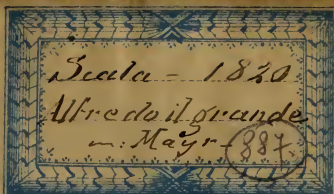 Scala - 1820
Alfredo il grande
m: Mayr -
887